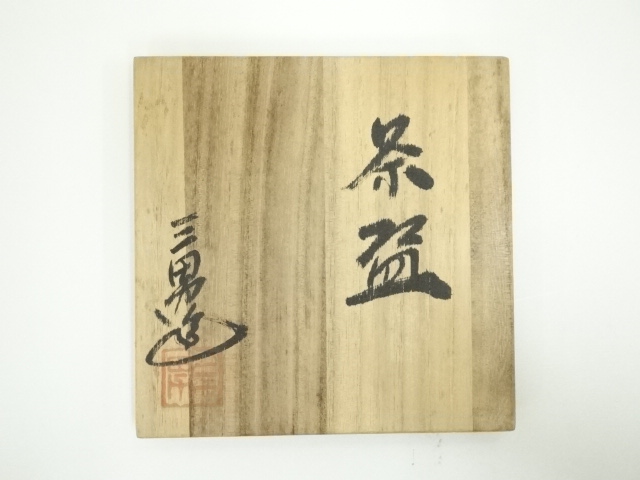 茶盌
三男造